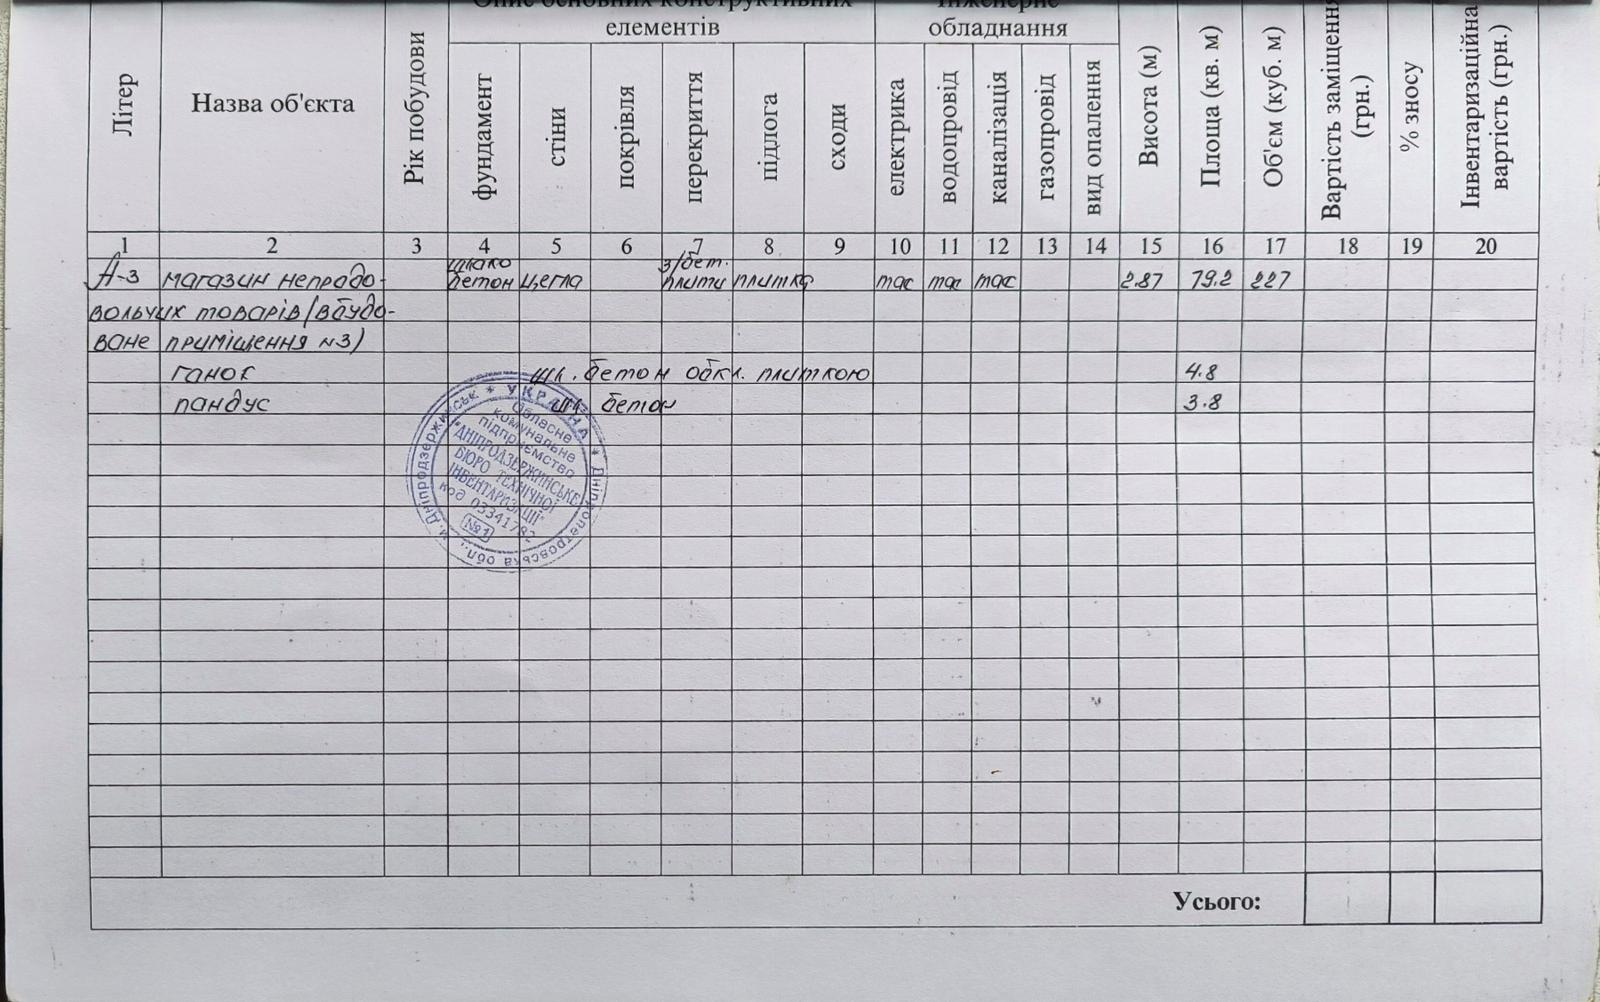 Опис основних конструктивних
елементів
Інженерне
обладнання
Літер
Назва об'єкта
Рік побудови
фундамент
стіни
покрівля
перекриття
підлога
сходи
електрика
водопровід
каналізація
газопровід
вид опалення
Висота (м)
Площа (кв. м)
Об'єм (куб. м)
Вартість заміщення
(грн.)
% зносу
Інвентаризаційна
вартість (грн.)
1 2 3 4 5 6 7 8 9 10 11 12 13 14 15 16 17 18 19 20
шлако з/бет.
А-3 магазин непродо- бетон цегла плити плитка 2.87 79.2 227
вольчих товарів (вбудо-
ване приміщення №3)
ганок шл. бетон обкл. плиткою 4.8
пандус шл бетон 3.8
* УКРАЇНА * Дніпропетровська обл., м. Дніпродзержинськ
Обласне
комунальне
підприємство
"ДНІПРОДЗЕРЖИНСЬКЕ
БЮРО ТЕХНІЧНОЇ
ІНВЕНТАРИЗАЦІЇ"
код 03341792
№1
Усього: